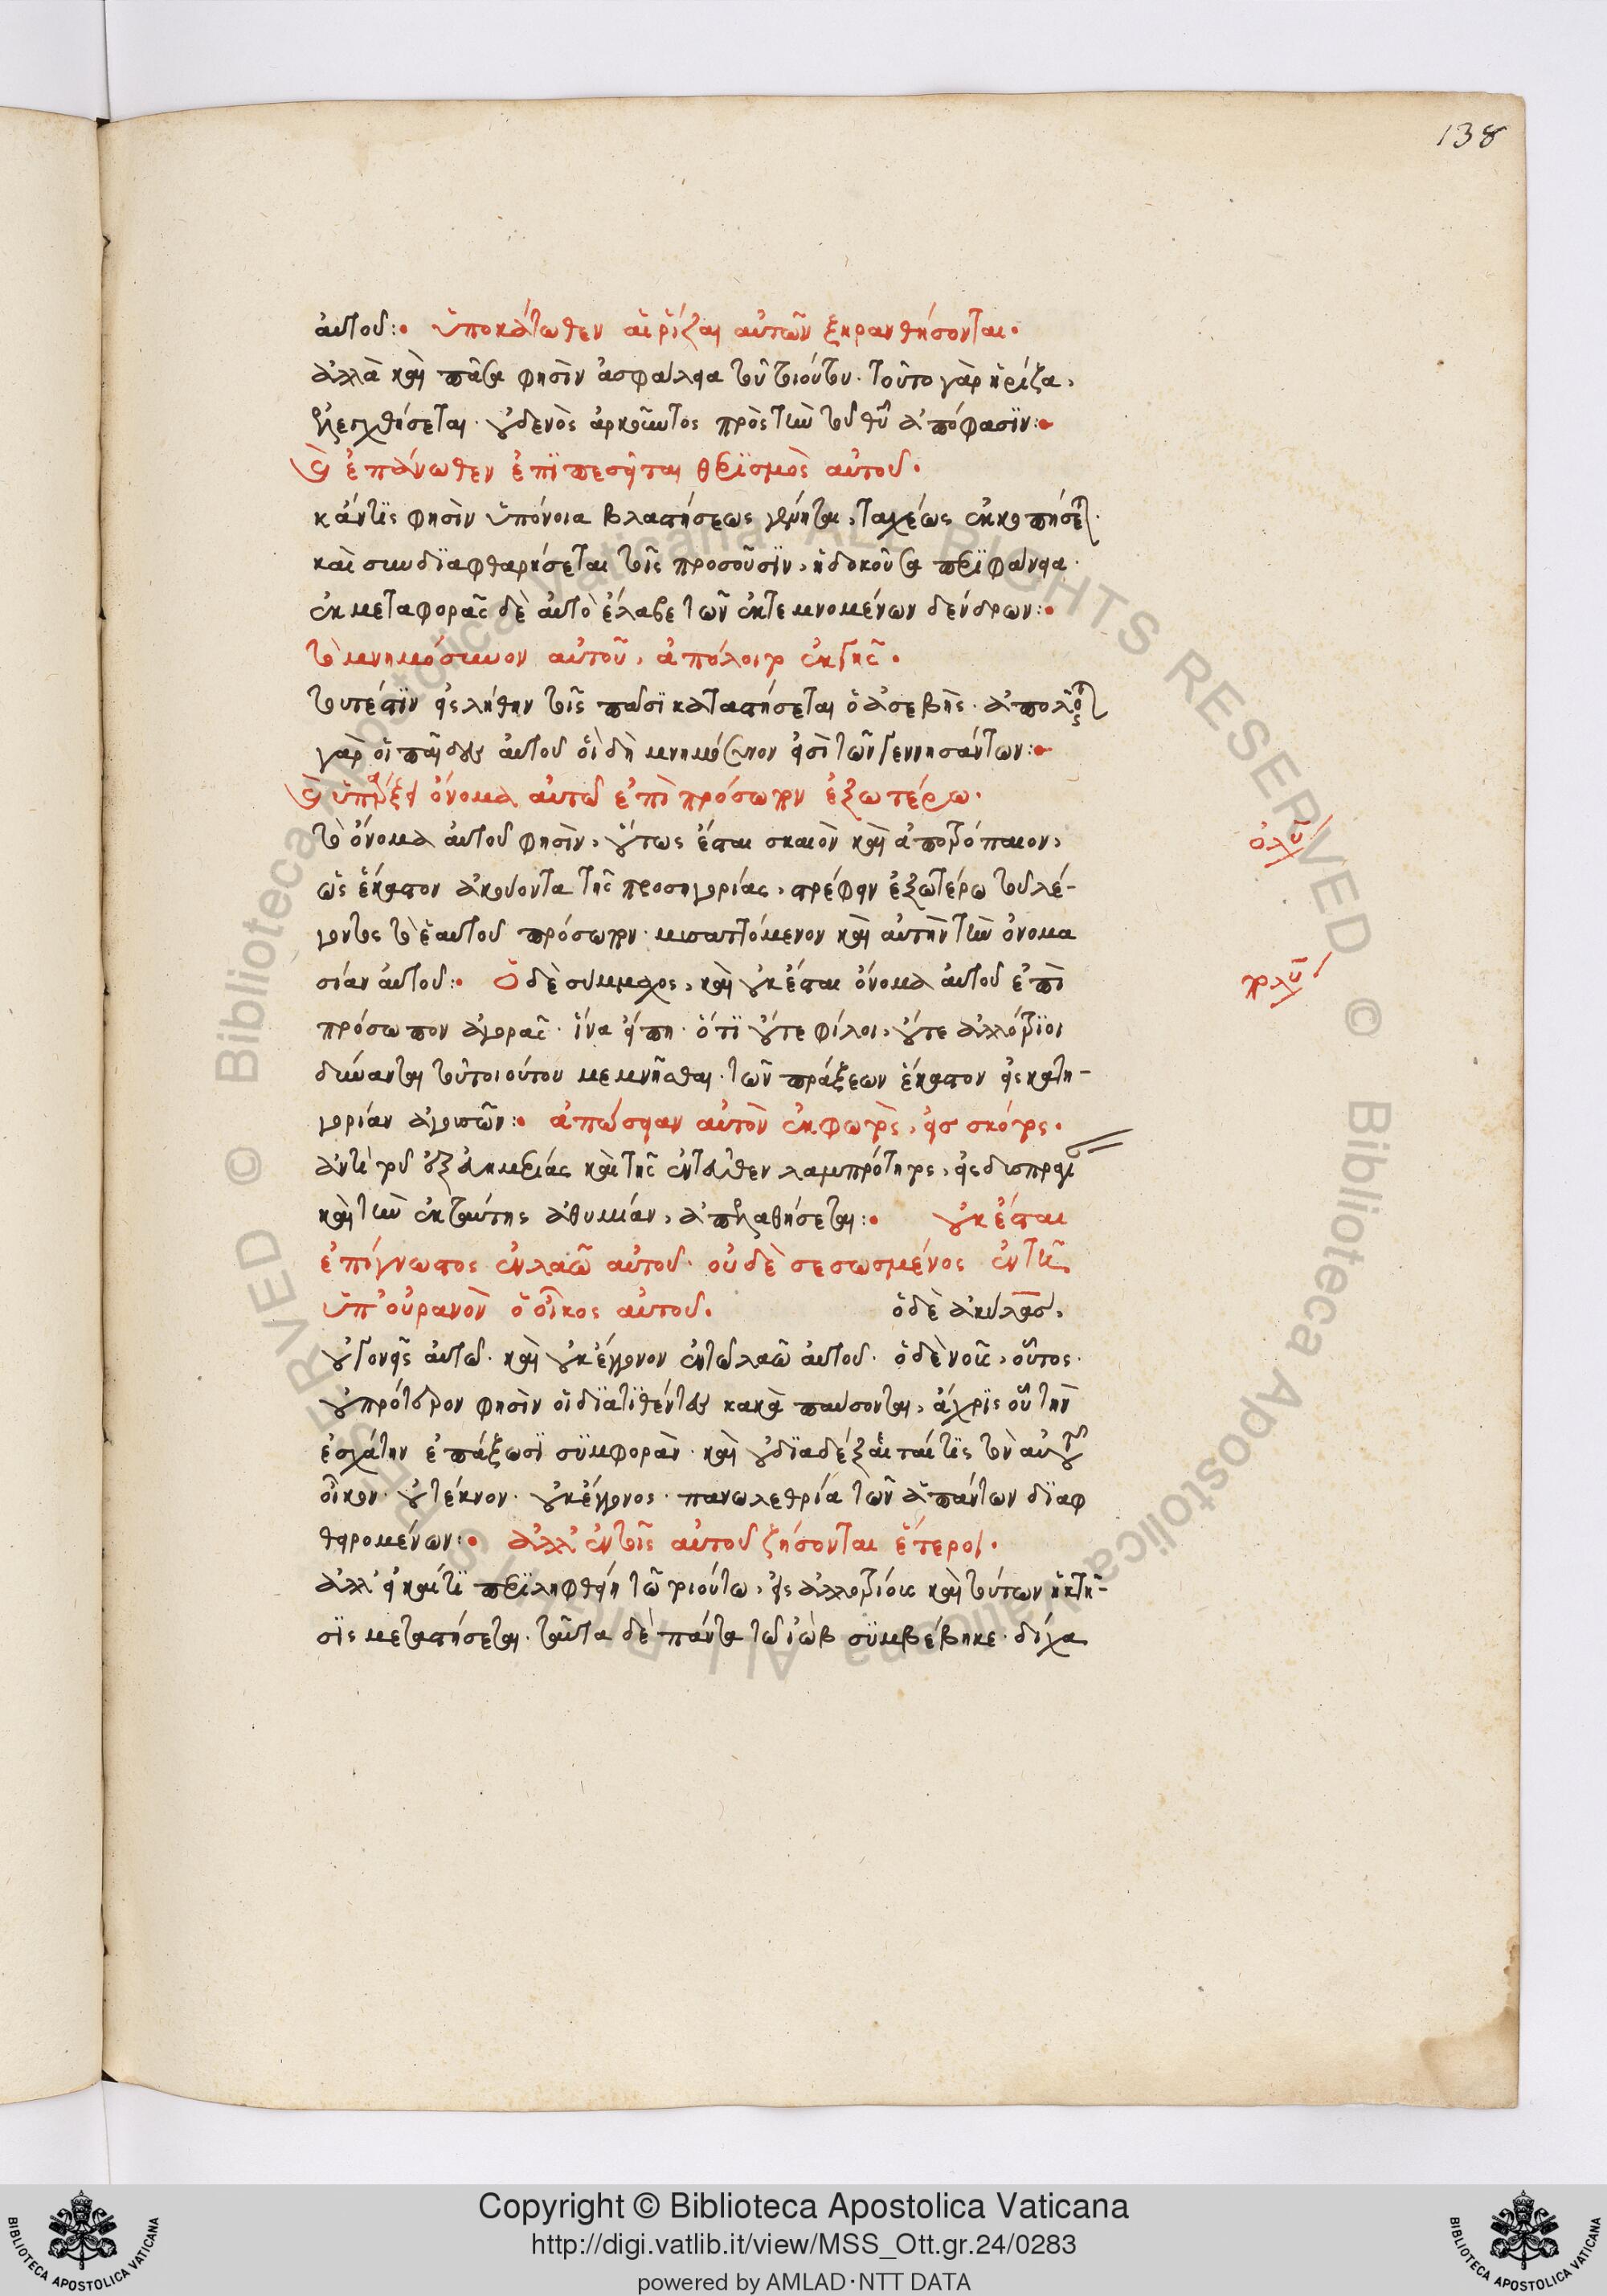 138
αὐτοῦ:· ὑποκάτωθεν αἱ ῥίζαι αὐτῶν ξηρανθήσονται·
ἀλλὰ καὶ πᾶσα φησὶν ἀσφάλεια τοῦ τοιούτου· τοῦτο γὰρ ἡ ῥίζα,
οὐδενὸς ἀρκοῦντος πρὸς τὴν τοῦ θυ ἀπόφασιν:·
καὶ ἐπάνωθεν ἐπιπεσεῖται θερισμὸς αὐτοῦ·
κἄν τις φησὶν ὑπόνοια βλαστήσεως γένηται, ταχέως ἐκκοπήσεται·
καὶ συνδιαφθαρήσεται τοῖς προσοῦσιν, ἡ δοκοῦσα περιφάνεια·
ἐκ μεταφορᾶς δὲ αὐτὸ ἔλαβε τῶν ἐκτεμνομένων δένδρων:·
τὸ μνημόσυνον αὐτοῦ, ἀπόλοιτο ἐκ γῆς·
τουτέστιν εἰς λήθην τοῖς πᾶσι καταστήσεται ὁ ἀσεβής·
γὰρ οἱ παῖδες αὐτοῦ οἳ δὴ μνημόσυνον εἰσὶ τῶν γεννησάντων:·
καὶ ὑπάρξει ὄνομα αὐτῶ ἐπὶ πρόσωπον ἐξωτέρω·
τὸ ὄνομα αὐτοῦ φησὶν, οὕτως ἔσται σκαιὸν καὶ ἀποτρόπαιον,
ὡς ἕκαστον ἀκούοντα τῆς προσηγορίας, στρέφειν ἐξωτέρω τοῦ λέ-
γοντος τὸ ἑαυτοῦ πρόσωπον· μυσαττόμενον καὶ αὐτὴν τὴν ὀνομα
σίαν αὐτοῦ:· Ὁ δὲ σύμμαχος, καὶ οὐκ ἔσται ὄνομα αὐτοῦ ἐπὶ
πρόσωπον ἀγορᾶς· ἵνα εἴπη· ὅτι οὔτε φίλοι, οὔτε ἀλλότριοι
δύνανται τοῦ τοιούτου μεμνῆσθαι· τῶν πράξεων ἕκαστον εἰς κατη-
γορίαν ἀγουσῶν:· ἀπώσειαν αὐτὸν ἐκ φωτὸς, εἰς σκότος·
ἀντὶ τοῦ ἐξ εὐημερίας καὶ τῆς ἐντεῦθεν λαμπρότητος, εἰς δυσπραγί
καὶ τὴν ἐκ ταύτης ἀθυμίαν, ἀπελαθήσεται:· οὐκ ἔσται
ἐπίγνωστος ἐν λαῶ αὐτοῦ· οὐδὲ σεσωσμένος ἐν τῆ
ὑπ' οὐρανὸν ὁ οἶκος αὐτοῦ· ὁ δὲ ἀκύλας,
οὐ γονεῖς αὐτῶ· καὶ οὐκ ἔγγονον ἐν τῶ λαῶ αὐτοῦ· ὁ δὲ νοῦς, οὗτος·
οὐ πρότερον φησὶν οἱ διατιθέντες κακὰ παύσονται, ἄχρις οὗ τὴν
ἐσχάτην ἐπάξωσι συμφορὰν· καὶ οὐ διαδέξεταί τις τὸν αὐτοῦ
οἶκον· οὐ τέκνον· οὐκ ἔγγονος· πανωλεθρία τῶν ἁπάντων διαφ
θειρομένων:· ἀλλ' ἐν τοῖς αὐτοῦ ζήσονται ἕτεροι·
ἀλλ' εἰ καί τι περιληφθείη τῶ τοιούτω, εἰς ἀλλοτρίους καὶ τούτων ἡ κτῆ-
σις μεταστήσεται· ταῦτα δὲ πάντα τῶ ἰὼβ συμβέβηκε· δίχα
Copyright © Biblioteca Apostolica Vaticana
http://digi.vatlib.it/view/MSS_Ott.gr.24/0283
powered by AMLAD·NTT DATA